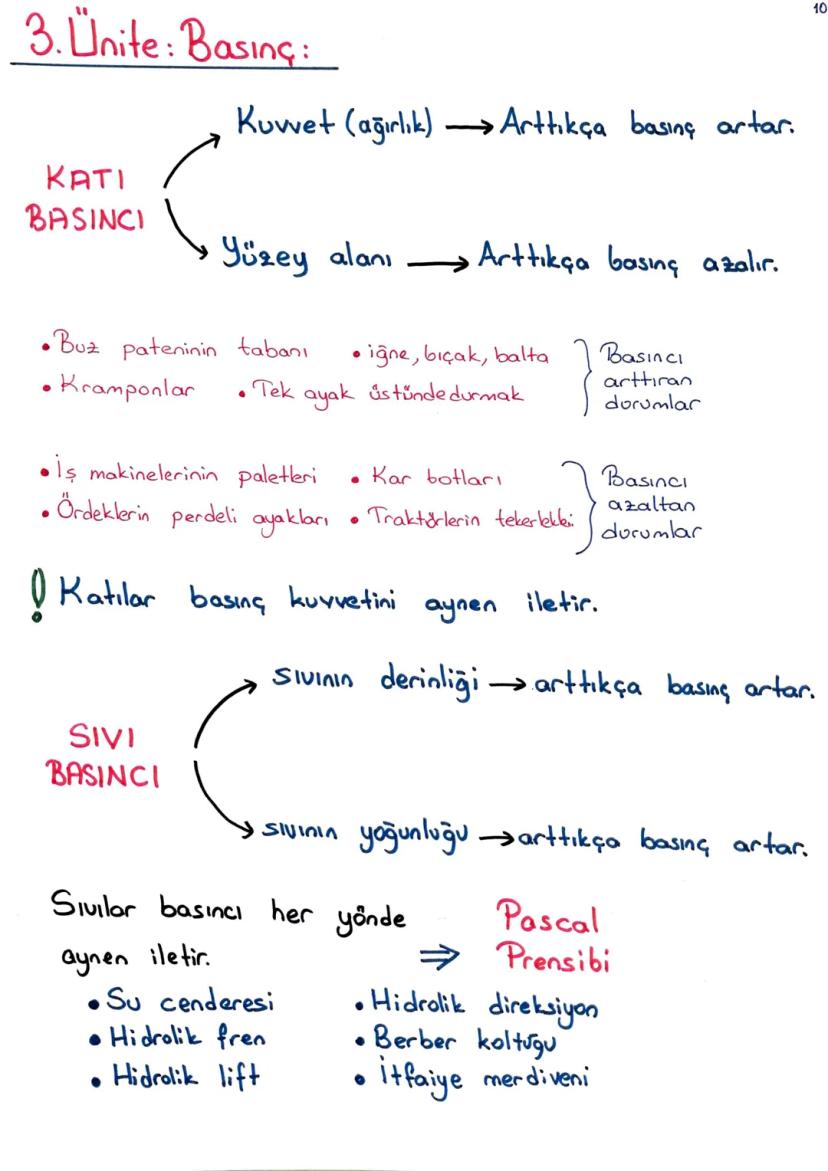 10
3. Ünite: Basınç:
Kuvvet (ağırlık) → Arttıkça basınç artar.
KATI
BASINCI
Yüzey alanı → Arttıkça basınç azalır.
• Buz pateninin tabanı • iğne, bıçak, balta
• Kramponlar • Tek ayak üstünde durmak
Basıncı
arttıran
durumlar
• İş makinelerinin paletleri • Kar botları
• Ördeklerin perdeli ayakları • Traktörlerin tekerlekleri
Basıncı
azaltan
durumlar
! Katılar basınç kuvvetini aynen iletir.
sıvının derinliği → arttıkça basınç artar.
SIVI
BASINCI
sıvının yoğunluğu → arttıkça basınç artar.
Sıvılar basıncı her yönde
aynen iletir.
⇒ Pascal
Prensibi
• Su cenderesi • Hidrolik direksiyon
• Hidrolik fren • Berber koltuğu
• Hidrolik lift • İtfaiye merdiveni